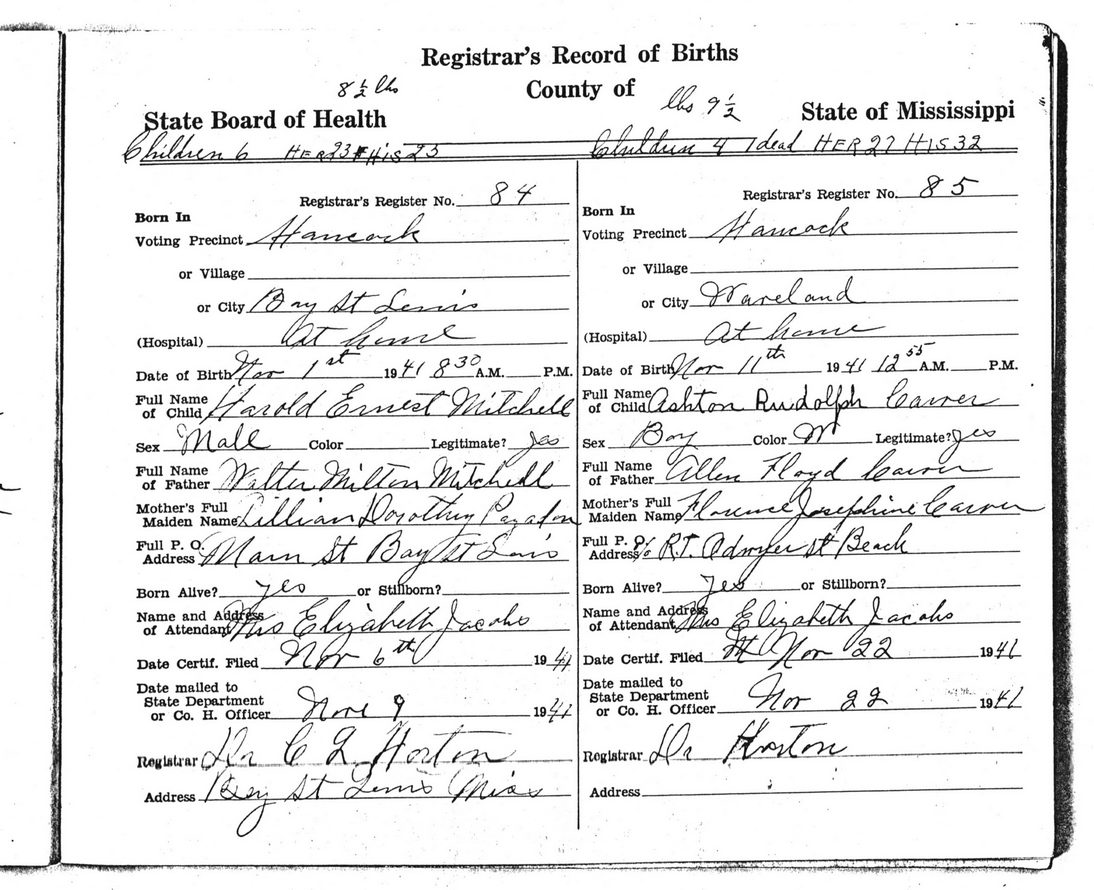 Registrar's Record of Births
County of
8 ½ lbs
lbs 9 ½
State Board of Health
State of Mississippi
Children 6 HER 23 HIS 25
Children 4 1 dead HER 27 HIS 32
Registrar's Register No. 84
Born In
Voting Precinct Hancock
or Village
or City Bay St Louis
(Hospital) At home
Date of Birth Nov 1st 1941 8 30 A.M. P.M.
Full Name
of Child Harold Ernest Mitchell
Sex Male Color Legitimate? yes
Full Name
of Father Walter Milton Mitchell
Mother's Full
Maiden Name Lillian Dorothy
Full P. O.
Address Main St Bay St Louis
Born Alive? yes or Stillborn?
Name and Address
of Attendant Mrs Elizabeth Jacobs
Date Certif. Filed Nov 6th 1941
Date mailed to
State Department
or Co. H. Officer 9 1941
Registrar Dr C L Horton
Address Bay St Louis Miss
Registrar's Register No. 85
Born In
Voting Precinct Hancock
or Village
or City Waveland
(Hospital) At home
Date of Birth Nov 11th 1941 12 55 A.M. P.M.
Full Name
of Child Ashton Rudolph Carver
Sex Boy Color W Legitimate? yes
Full Name
of Father Allen Floyd Carver
Mother's Full
Maiden Name Florence Josephine Carver
Full P. O.
Address R.T. St Beach
Born Alive? yes or Stillborn?
Name and Address
of Attendant Mrs Elizabeth Jacobs
Date Certif. Filed Nov 22 1941
Date mailed to
State Department
or Co. H. Officer Nov 22 1941
Registrar Dr Horton
Address